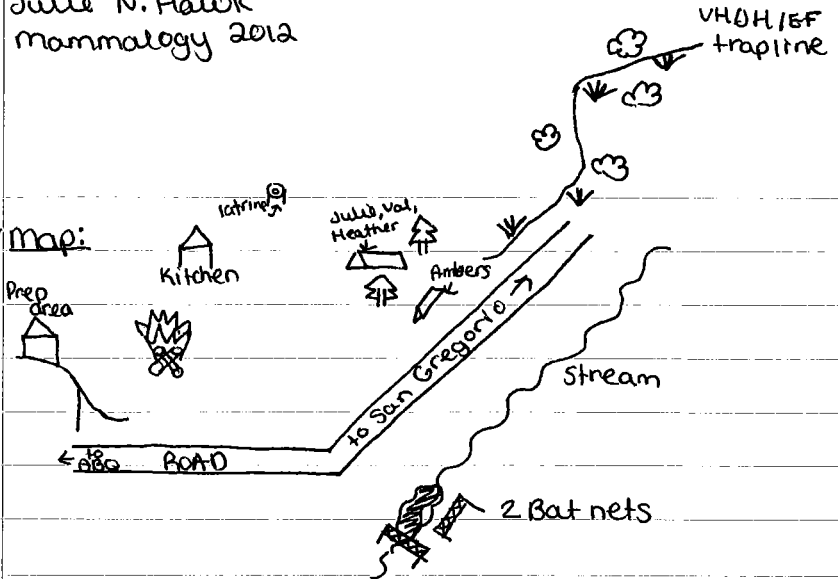 Julie N. Hawk
mammalogy 2012
VHDH/EF
trapline
latrine
Julie, Val,
Heather
Map:
Kitchen
Ambers
Prep
area
to San Gregorio
Stream
to
ABQ
ROAD
2 Bat nets